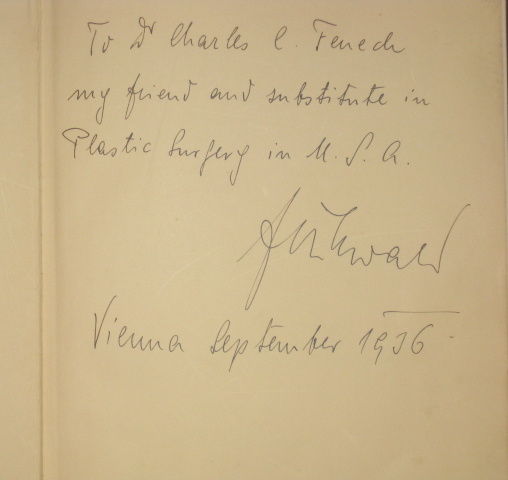 To Dr Charles C. Fenech
my friend and substitute in
Plastic Surgery in U. S. A.
Vienna September 1936